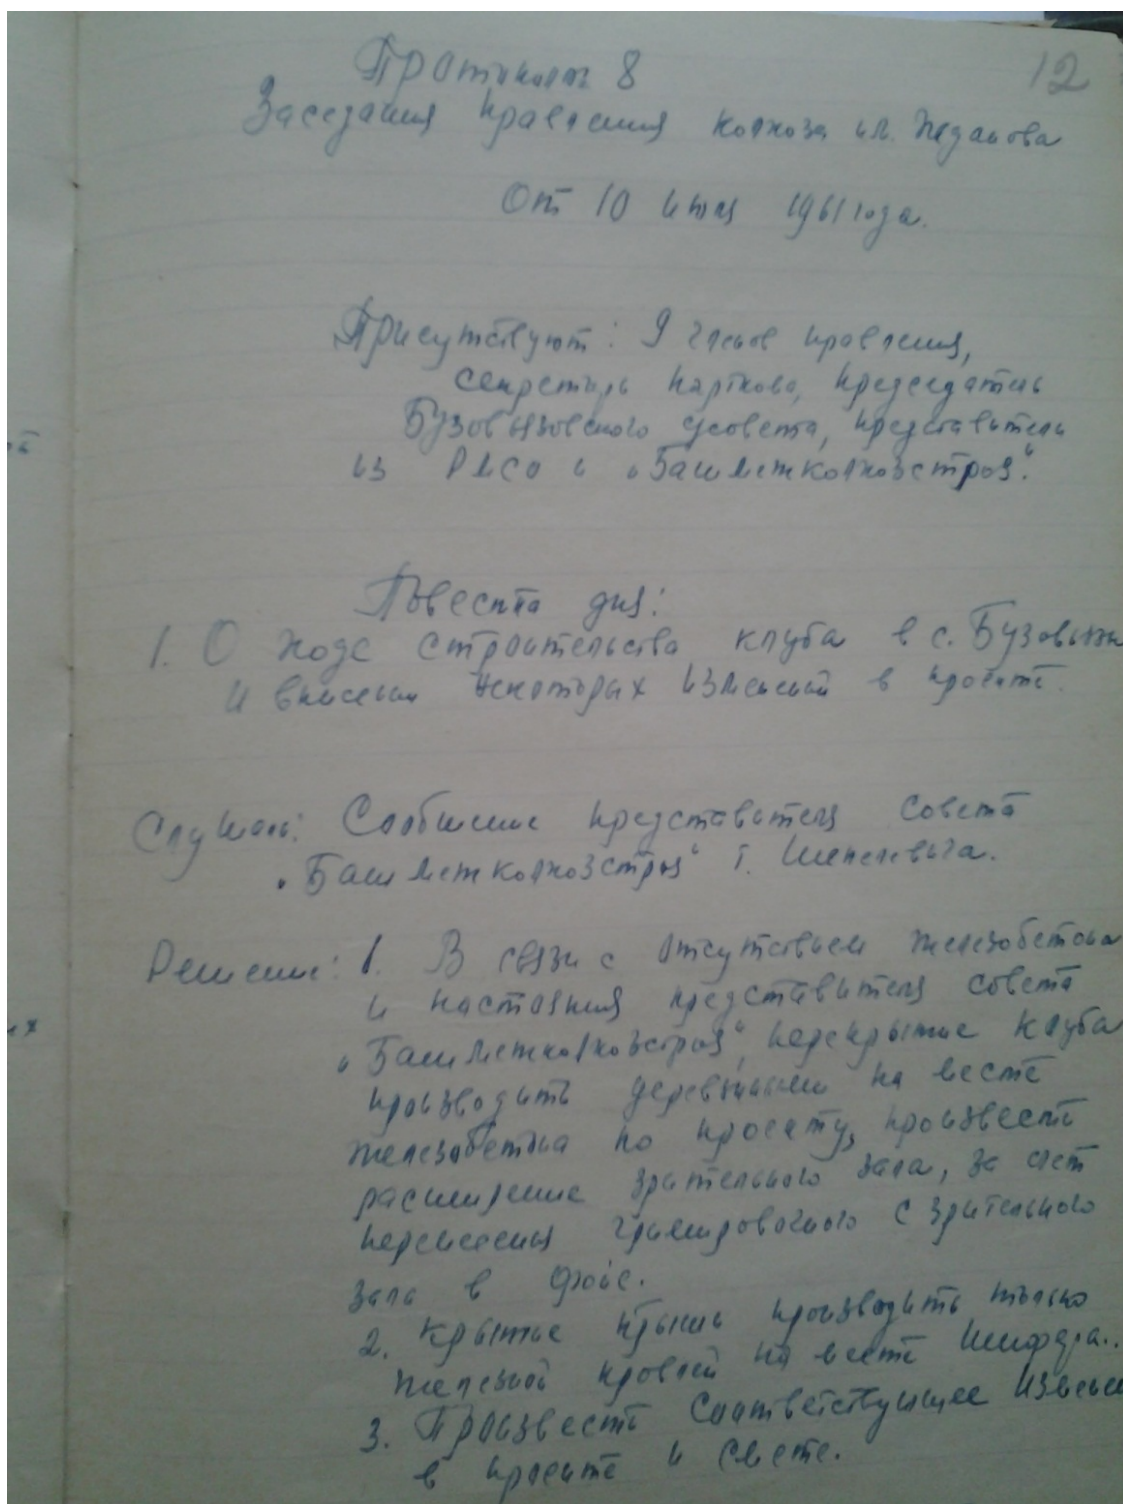 12
Протокол 8
Заседания правления колхоза им. Жданова
От 10 июля 1961 года.
Присутствуют: 9 членов правления,
секретарь парткома, председатель
Бузовьязовского с/совета, представители
из РМСО и „Башмежколхозстроя".
Повестка дня:
1. О ходе строительства клуба в с. Бузовьязы
и внесении некоторых изменений в проекте.
Слушали: Сообщение представителя совета
„Башмежколхозстроя" т.
Решение: 1. В связи с отсутствием железобетона
и настояния представителя совета
„Башмежколхозстроя", перекрытие клуба
производить деревянными на месте
железобетона по проекту, произвести
расширение зрительного зала, за счет
перенесения гримировочного с зрительного
зала в фойе.
2. Крытье крыши производить только
железной кровлей на месте шифера..
3. Произвести соответствующее
в проекте и смете.
ой
их